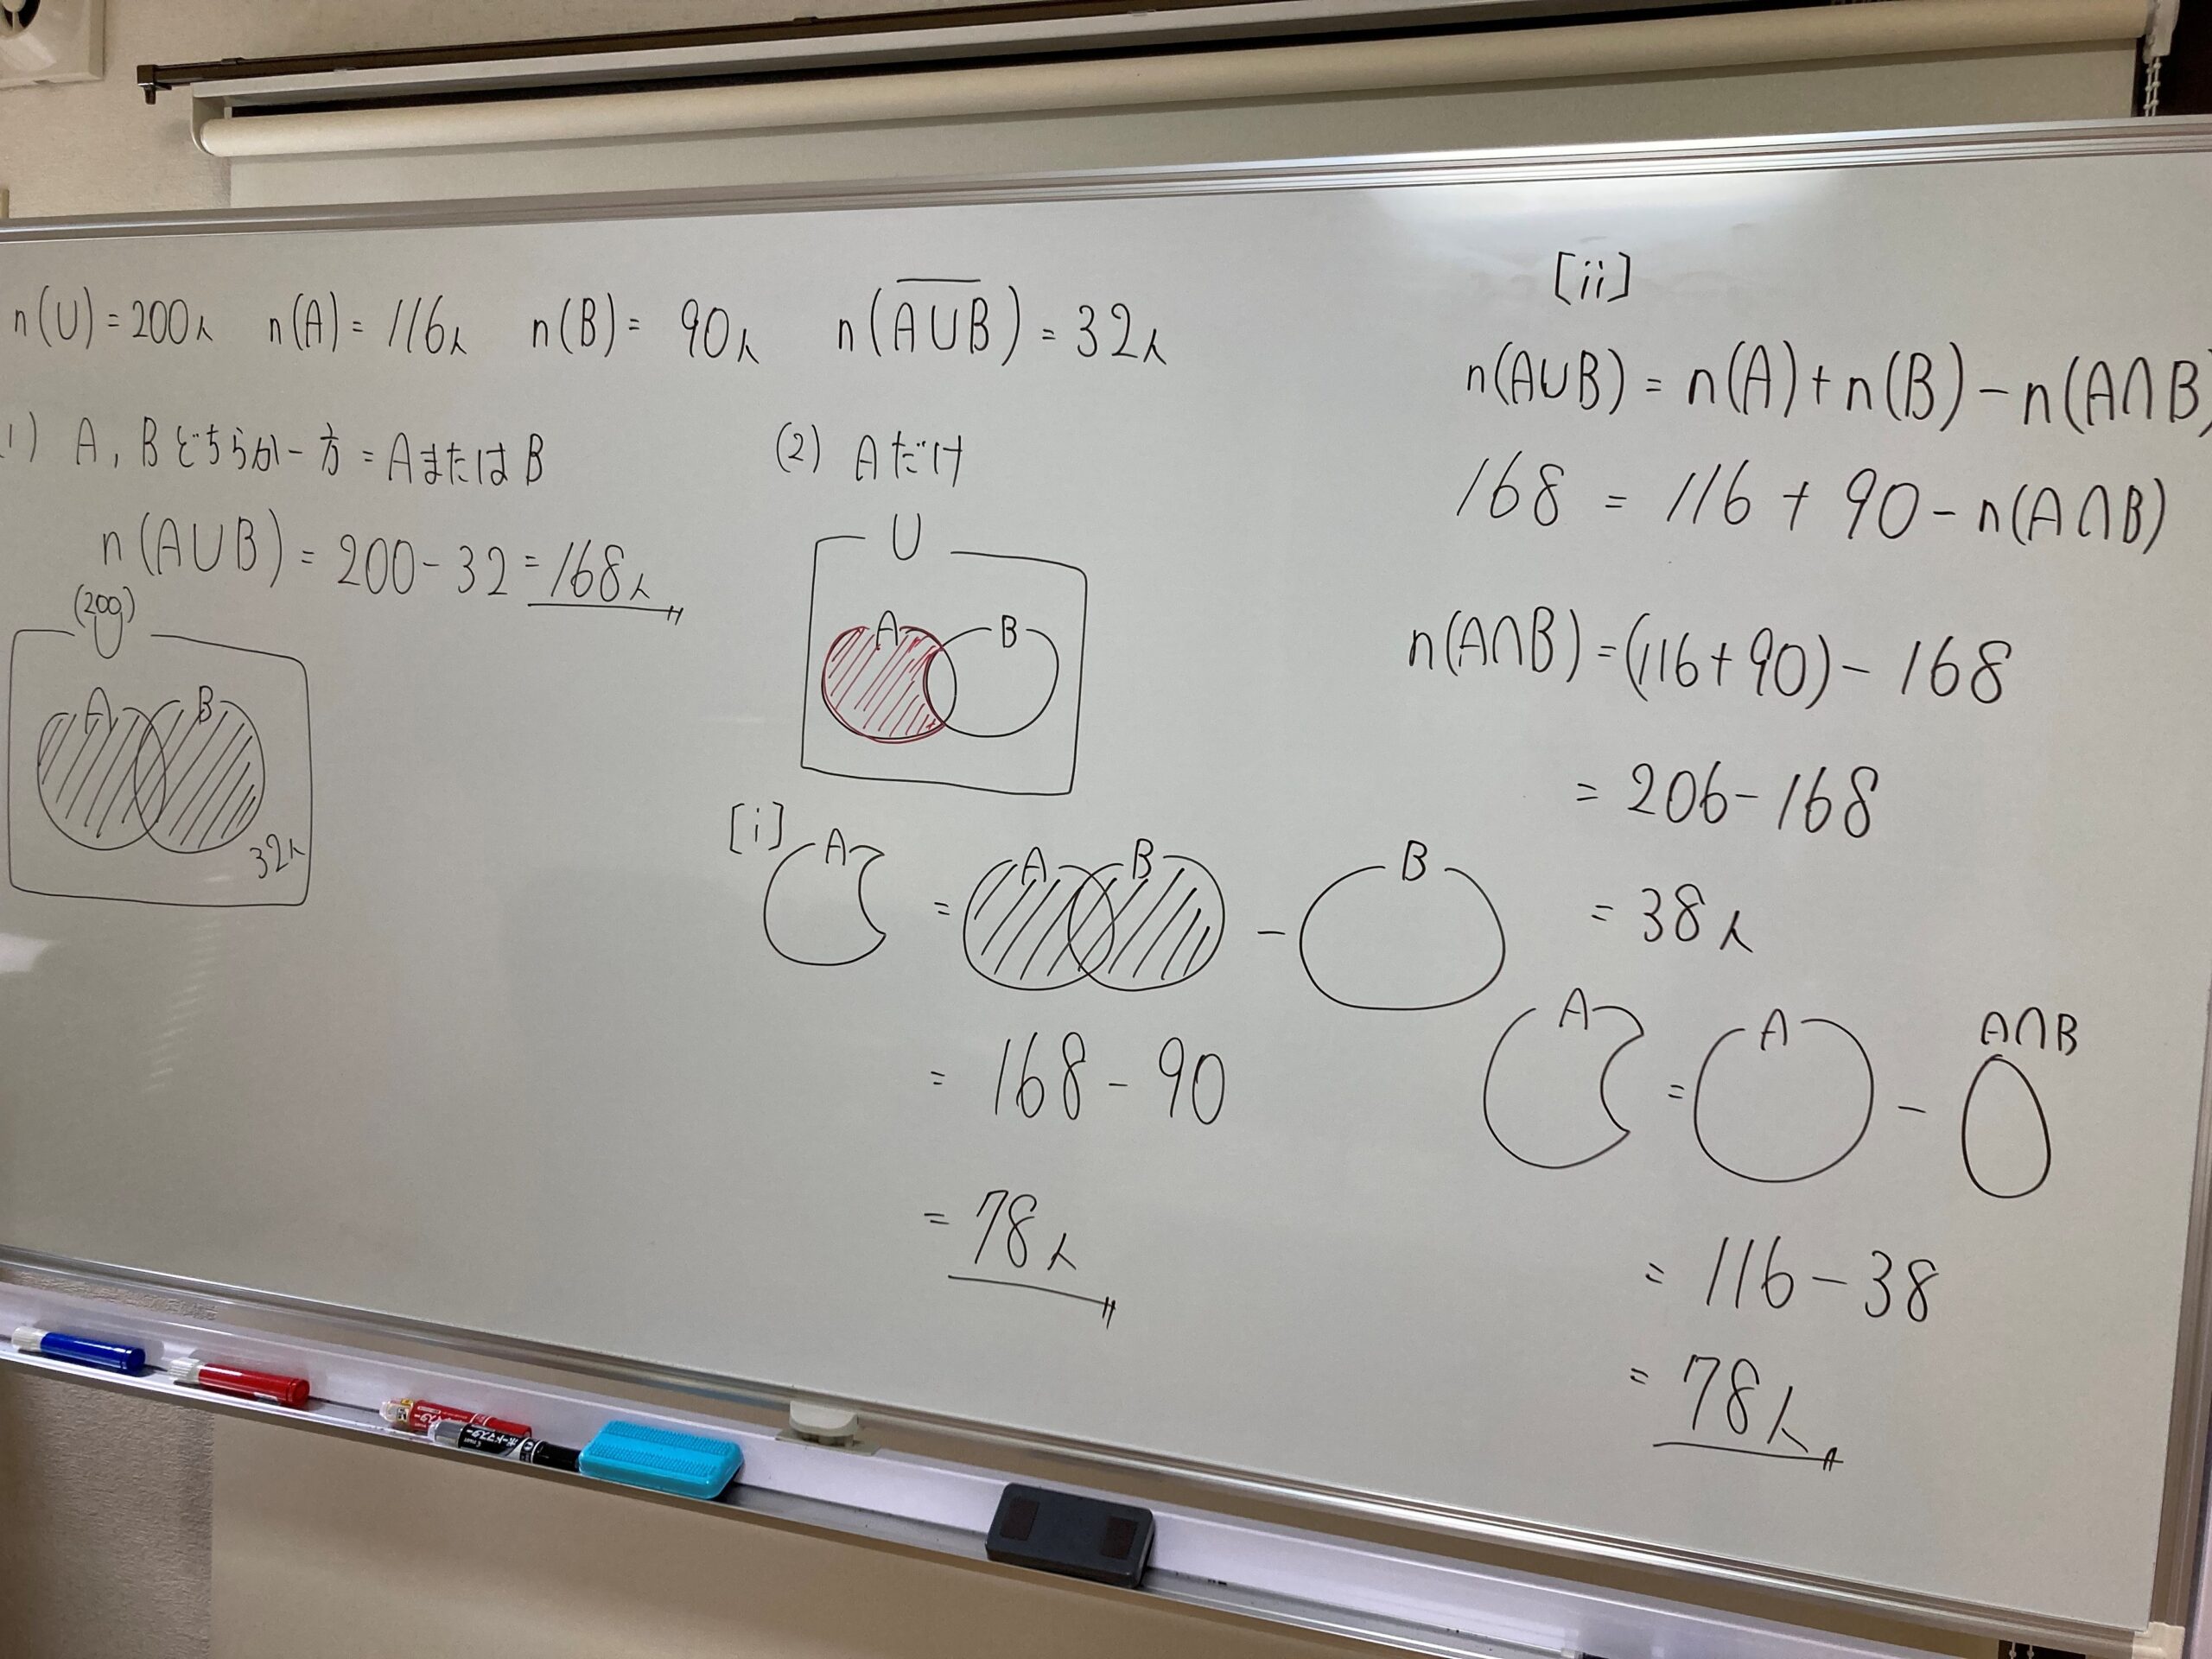 n(U)=200人 n(A)=116人 n(B)=90人 n(\overline{A∪B})=32人
1) A,Bどちらか一方=AまたはB
n(A∪B)=200-32=168人
(200)
U
A B
32人
(2) Aだけ
U
A B
[i]
A = A B - B
= 168-90
= 78人
[ii]
n(A∪B)=n(A)+n(B)-n(A∩B)
168 = 116+90-n(A∩B)
n(A∩B)=(116+90)-168
= 206-168
= 38人
A = A - A∩B
= 116-38
= 78人
ボードマスター